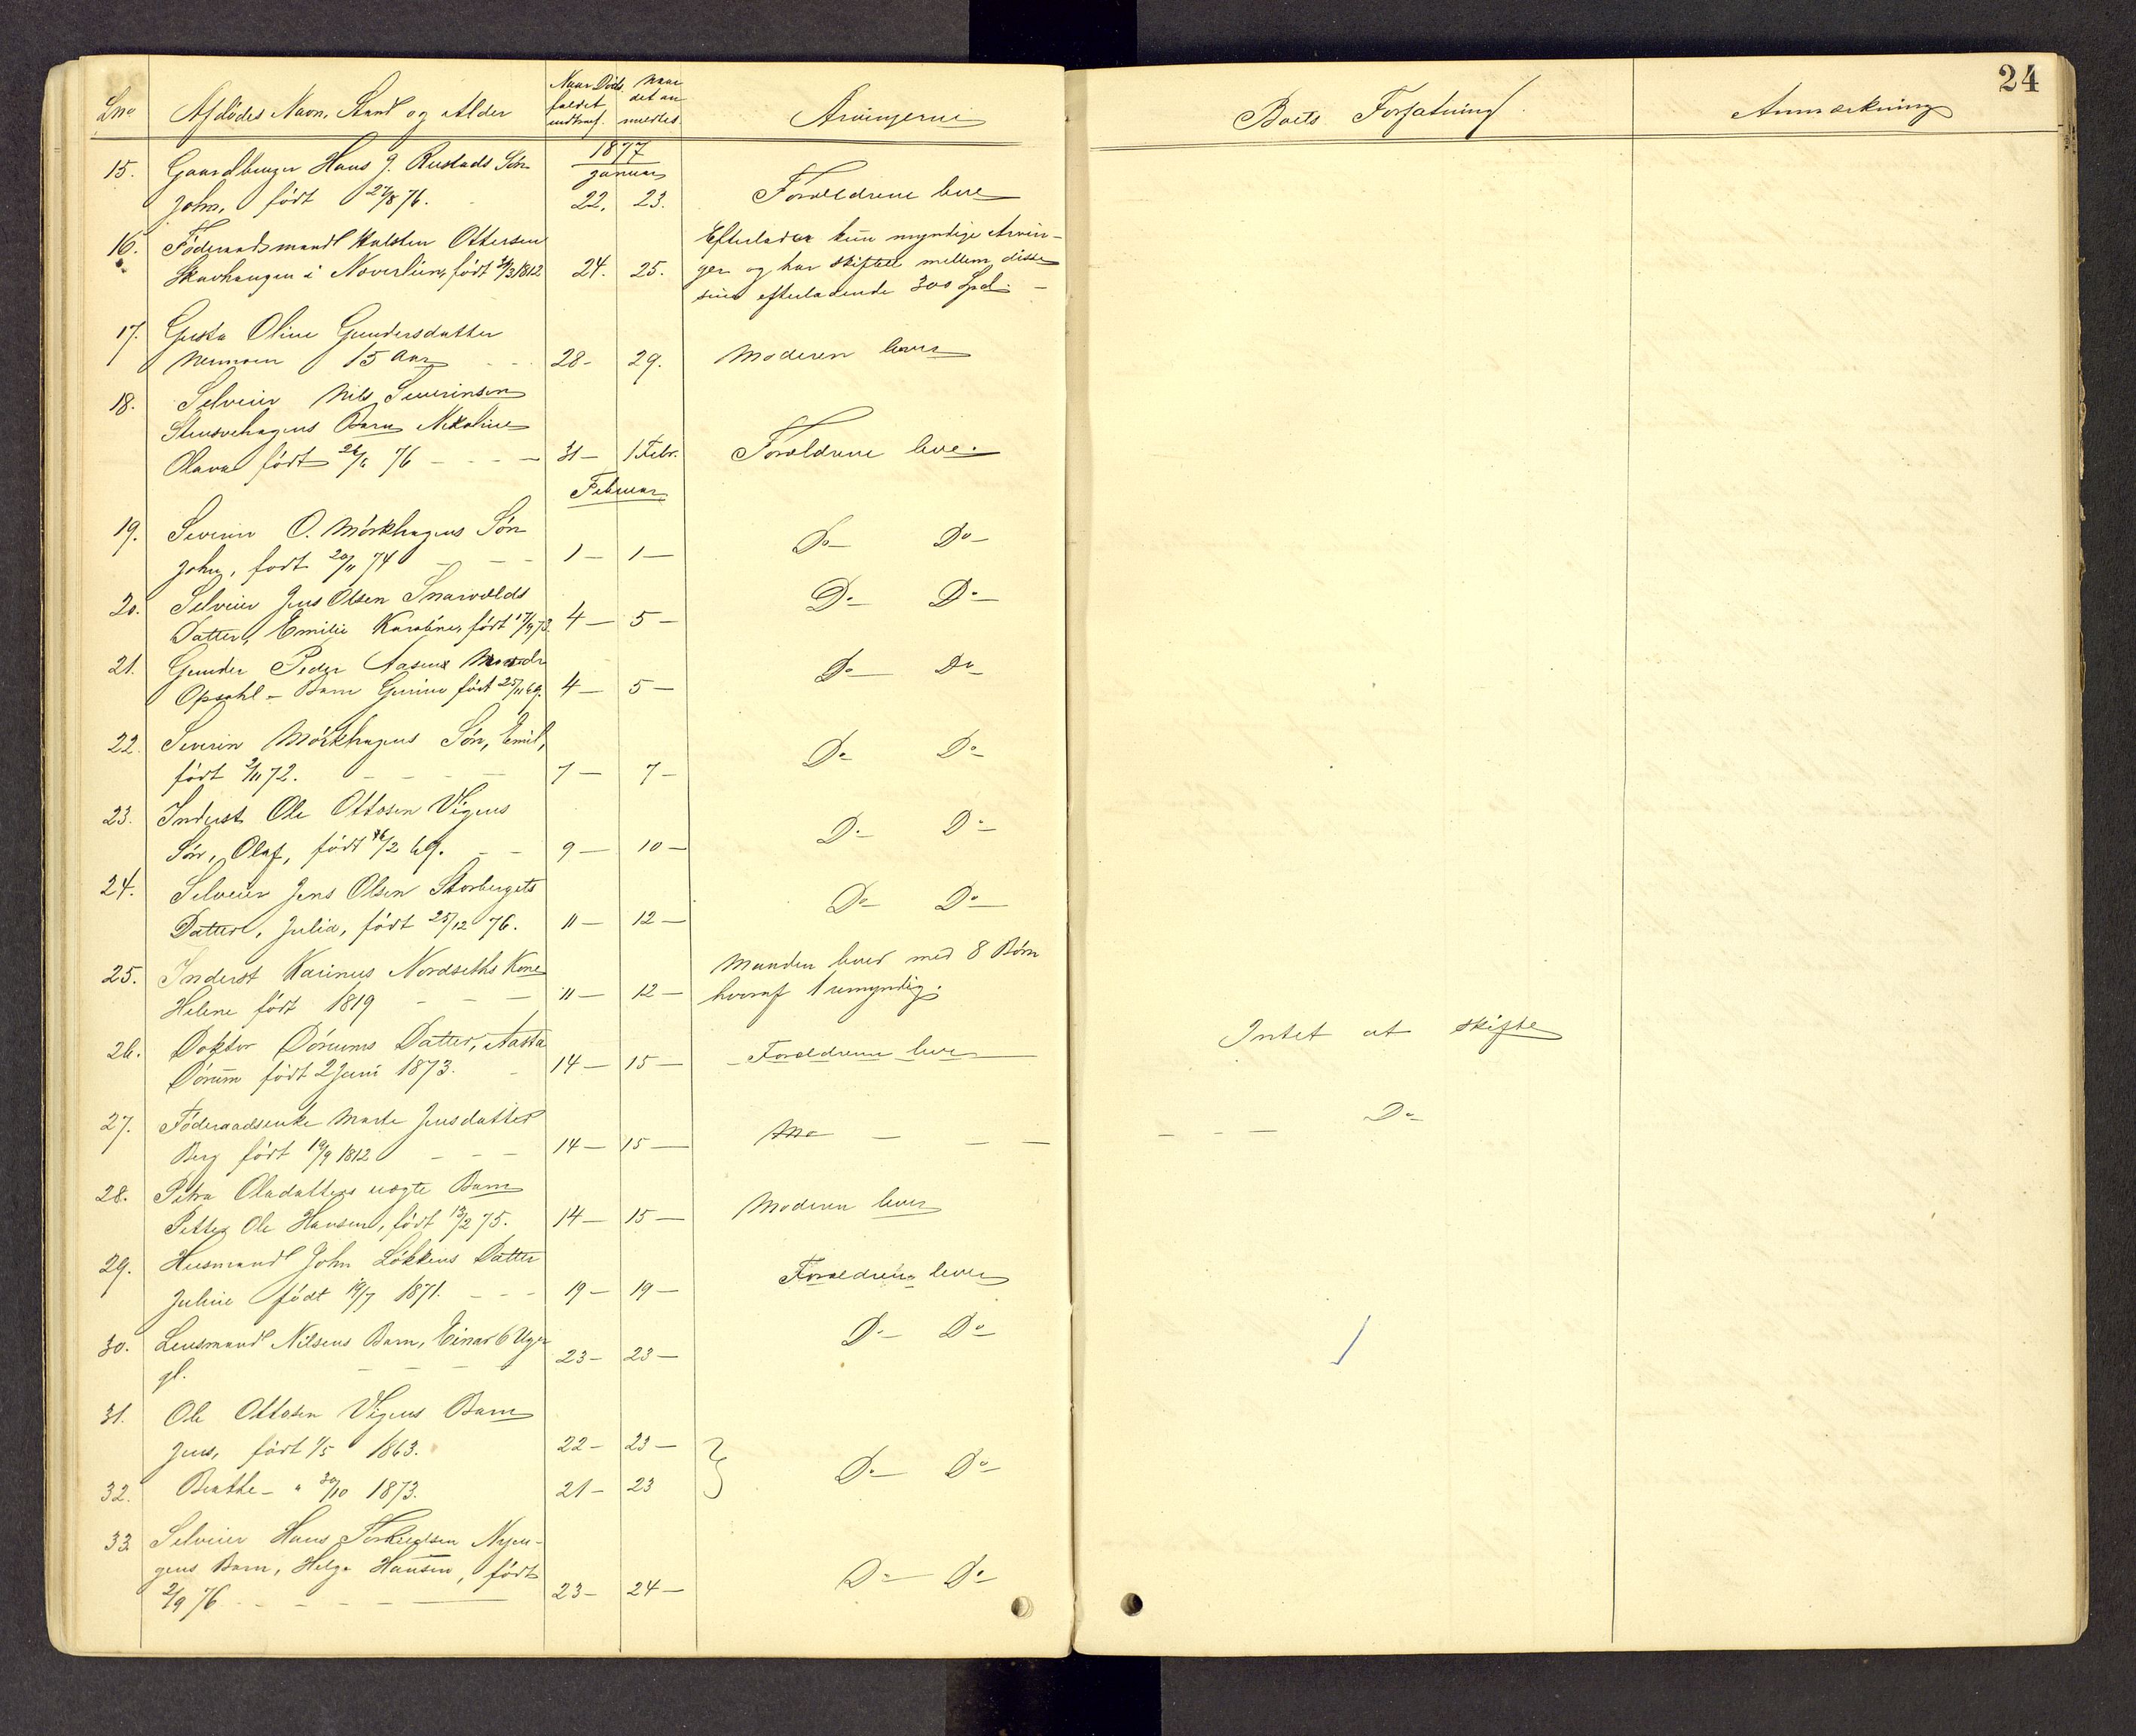 24
Lno Afdödes Navn, Stand og Alder Naar Döds- Naar Arvingerne Boets Forfatning Anmærkning
faldet det an-
indtraf. meldtes
15. Gaardbruger Hans J. Rustads Sön 1877
Januar
John, födt 27/8 76. 22. 23. Forældrene leve
16. Föderaadsmand Halsten Ottersen Efterlader kun myndige Arvin-
Skavhaugen i Noverlien, födt 1812 24. 25. ger og har skiftet mellem disse
sine efterladende 300 Spd. -
17. Gusta Oline Gundersdatter
Nermoen 15 Aar 28- 29. Moderen lever
18. Selveier Nils Severinsen
Barn Nikoline
Olava födt 76 - - - 31- 1 Febr. Forældrene leve.
Februar
19. Severin O. Mörkhagens Sön
John, födt 20/11 74 - - - 1- 1- Do- Do-
20. Selveier Jens Olsen Snarvolds
Datter, Emilie Karoline, födt 17/9 73. 4- 5- Do- Do-
21. Gunder Peder Aasens
Opsahl - Barn Gurine födt 25/11 69. 4- 5- Do- Do-
22. Severin Mörkhagens Sön, Emil,
födt 2/11 72. - - - 7- 7- Do- Do-
23. Inderst Ole Ottosen Vigens
Sön, Olaf, födt 16/2 69. - - 9- 10- Do- Do-
24. Selveier Jens Olsen Storbergets
Datter, Julia, födt 25/12 76. 11- 12- Do- Do-
25. Inderst Karinus Nordseths Kone Manden lever med 8 Börn
Helene födt 1819 - - - 11- 12- hvoraf 1 umyndig.
Intet at skifte
26. Doktor Dörums Datter, Aasta
Dörum födt 2 Juni 1873. - 14- 15- - Forældrene lever
27. Föderaadsenke Marte Jensdatter
Berg födt 19/9 1812 - - - 14- 15- - - - - - - Do-
28. Petra Olsdatters uægte Barn
Petter Ole Hansen, födt 13/2 75. 14- 15- Moderen lever
29. Husmand John Lökkens Datter
Juline födt 19/7 1871. - - - 19- 19- Forældrene lever
30. Lensmand Nilsens Barn, Einar 6 Uger
gl. - - - 23- 23- Do- Do-
31. Ole Ottosen Vigens Barn
Jens, födt 1/5 1863. 22- 23-
32. Beathe - " 30/10 1873. 21- 23 Do- Do-
33 Selveier Hans Nyen-
gens Barn, Helge Hansen, födt
2/9 76 - - - - 23- 24- Do- Do-